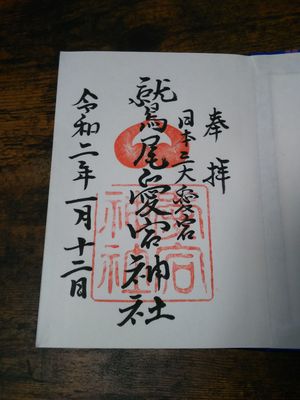 奉拝
日本三大愛宕
鷲尾愛宕神社
令和二年一月十二日
愛宕神社